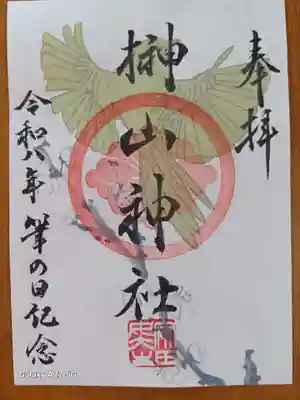 奉拝
榊山神社
令和八年 筆の日記念
Galaxy A25 5G